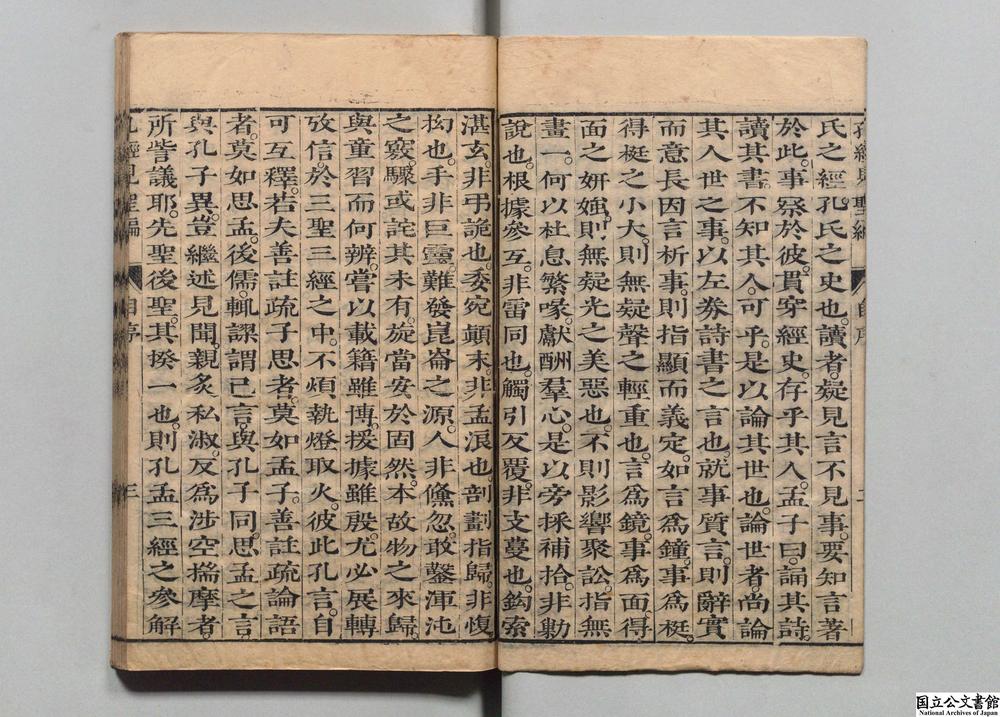 氏之經孔氏之史也。讀者疑見言不見事。要知言著
於此。事察於彼。貫穿經史。存乎其人。孟子曰。誦其詩。
讀其書。不知其人。可乎。是以論其世也。論世者。尚論
其人世之事。以左券詩書之言也。就事質言。則辭實
而意長。因言析事。則指顯而義定。如言為鐘。事為梃。
得梃之小大。則無疑聲之輕重也。言為鏡。事為面。得
面之妍媸。則無疑光之美惡也。不則影響聚訟。指無
畫一。何以杜息繁喙。獻酬羣心。是以旁採補拾。非勦
說也。根據參互。非雷同也。觸引反覆。非支蔓也。鈎索
湛玄。非弔詭也。委宛顛末。非孟浪也。剖劃指歸。非愎
拗也。手非巨靈。難發崑崙之源。人非儵忽。敢鑿渾沌
之竅。驟或詫其未有。旋當安於固然。本故物之來歸。
與童習而何辨。嘗以載籍雖博。援據雖殷。尤必展轉
攷信。於三聖三經之中。不煩執燈取火。彼此孔言。自
可互釋。若夫善註疏子思者。莫如孟子。善註疏論語
者。莫如思孟。後儒。輒謬謂已言。與孔子同。思孟之言
與孔子異。豈繼述見聞。親炙私淑。反為涉空揣摩者。
所訾議耶。先聖後聖。其揆一也。則孔孟三經之參解
孔經見聖編
自序
三
国立公文書館
National Archives of Japan